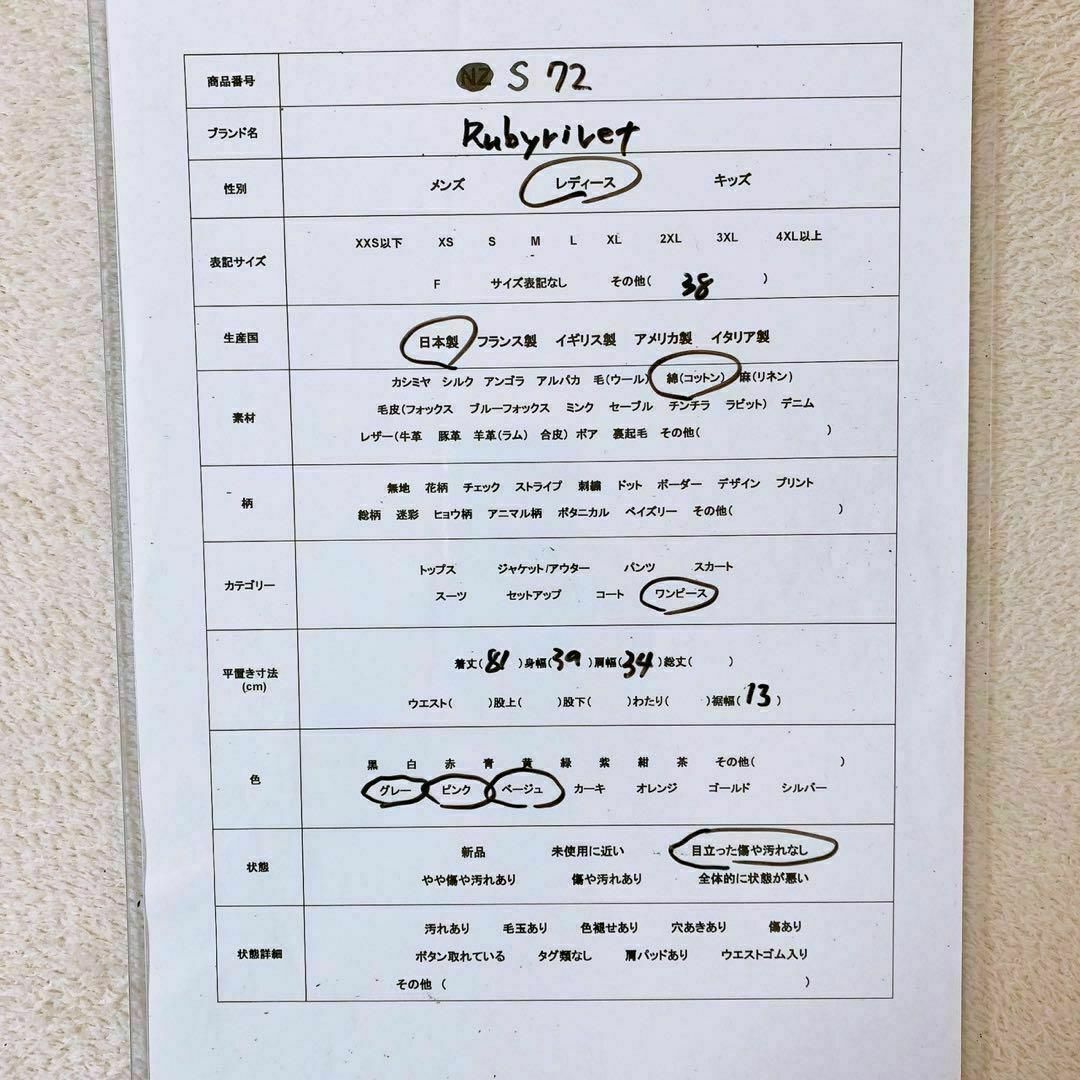 商品番号 NZ S 72
ブランド名 Rubyrivet
性別 メンズ レディース キッズ
表記サイズ XXS以下 XS S M L XL 2XL 3XL 4XL以上
F サイズ表記なし その他( 38 )
生産国 日本製 フランス製 イギリス製 アメリカ製 イタリア製
素材 カシミヤ シルク アンゴラ アルパカ 毛(ウール) 綿(コットン) 麻(リネン)
毛皮(フォックス ブルーフォックス ミンク セーブル チンチラ ラビット) デニム
レザー(牛革 豚革 羊革(ラム) 合皮) ボア 裏起毛 その他( )
柄 無地 花柄 チェック ストライプ 刺繍 ドット ボーダー デザイン プリント
総柄 迷彩 ヒョウ柄 アニマル柄 ボタニカル ペイズリー その他( )
カテゴリー トップス ジャケット/アウター パンツ スカート
スーツ セットアップ コート ワンピース
平置き寸法 (cm) 着丈( 81 )身幅( 39 )肩幅( 34 )総丈( )
ウエスト( )股上( )股下( )わたり( )裾幅( 13 )
色 黒 白 赤 青 黄 緑 紫 紺 茶 その他( )
グレー ピンク ベージュ カーキ オレンジ ゴールド シルバー
状態 新品 未使用に近い 目立った傷や汚れなし
やや傷や汚れあり 傷や汚れあり 全体的に状態が悪い
状態詳細 汚れあり 毛玉あり 色褪せあり 穴あきあり 傷あり
ボタン取れている タグ類なし 肩パッドあり ウエストゴム入り
その他 ( )